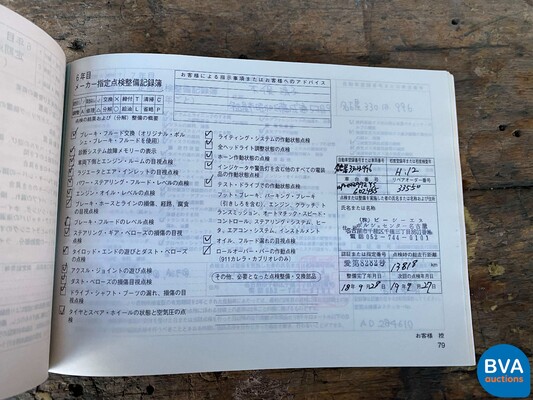 6年目
メーカー指定点検整備記録簿
お客様による指示事項またはお客様へのアドバイス
点検の結果および(分解)整備の概要
ブレーキ・フルード交換(オリジナル・ポル
シェ・ブレーキ・フルードを使用)
診断システム故障メモリーの表示
車両下側とエンジン・ルームの目視点検
ラジエータとエア・インレットの目視点検
パワー・ステアリング・フルード・レベルの点検
エンジン・オイル・レベルの点検
ブレーキ・ホースとラインの損傷、経路、腐食
の目視点検
ブレーキ・フルードのレベル点検
ステアリング・ギア・ベローズの損傷の目視
点検
タイロッド・エンドの遊びとダスト・ベローズ
の点検
アクスル・ジョイントの遊び点検
ダスト・ベローズの損傷目視点検
ドライブ・シャフト・ブーツの漏れ、損傷の目
視点検
タイヤとスペア・ホイールの状態と空気圧の点
検
ライティング・システムの作動状態点検
全ヘッドライト調整状態の点検
ホーン作動状態の点検
インジケータや警告灯を含む他のすべての電装品
の作動状態点検
テスト・ドライブでの作動状態点検
フット・ブレーキ、パーキング・ブレーキ
(引きしろを含む)、エンジン、クラッチ、ト
ランスミッション、オートマチック・スピード・
コントロール、ステアリング・システム、ヒー
タ、エアコン・システム、インストルメント
オイル、フルード漏れの目視点検
ロールオーバー・バーの作動点検
(911カブリオレのみ)
その他、必要となった点検整備・交換部品
H.12
33550
氏名または名称
(株)ピーシーエス
ポルシェセンター名古屋
電話052-744-0101
点検時の総走行距離
13818 km
整備完了年月日
次回の点検年月日
18年9月28日
19年9月27日
お客様 控
79
BVA
auctions